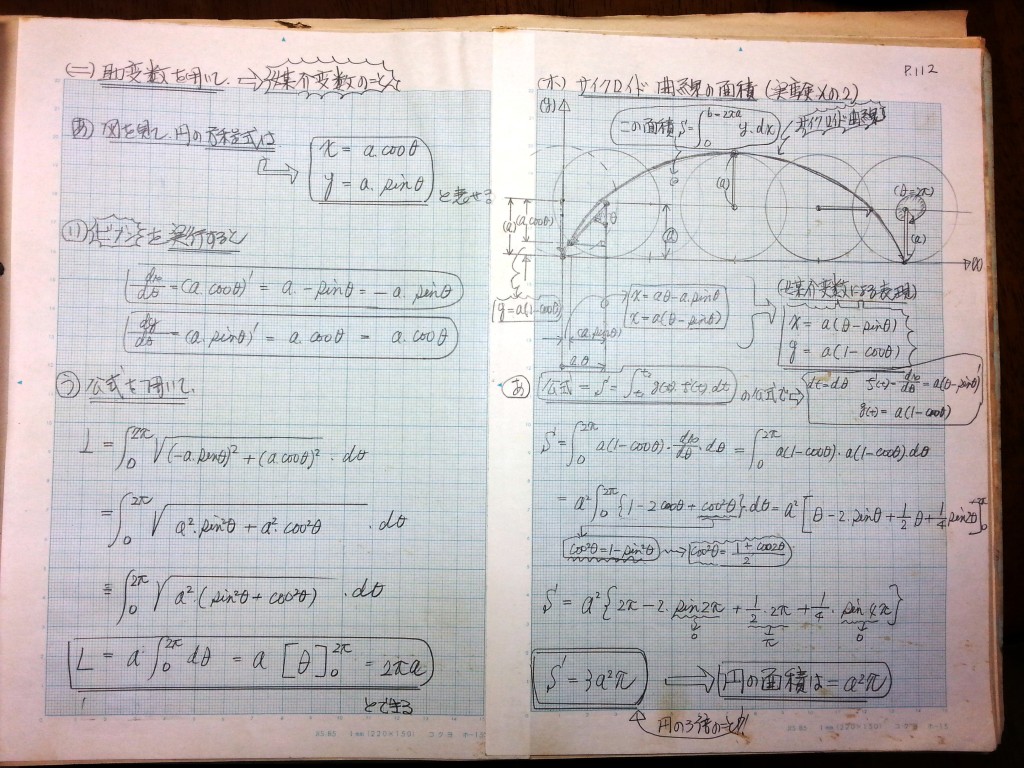 (ニ) 助変数を用いて. ⇒ 媒介変数のこと
(あ) 図を見て. 円の方程式は
x = a.cosθ
y = a. sinθ
と表せる
(い) ビブンを実行すると
dx/dθ = (a. cosθ)' = a. -sinθ = -a. sinθ
dy/dθ = (a. sinθ)' = a. cosθ = a. cosθ
う) 公式を用いて.
L = ∫₀^2π √(-a.sinθ)² + (a.cosθ)² . dθ
= ∫₀^2π √a². sin²θ + a². cos²θ . dθ
= ∫₀^2π √a². (sin²θ + cos²θ) . dθ
L = a ∫₀^2π dθ = a [θ]₀^2π = 2πa
とできる
P.112
(ホ) サイクロイド曲線の面積 (実験Xの2)
(y)
この面積 S = ∫₀^b=2πa y. dx
サイクロイド曲線
(a)
(θ=2π)
(a) (a.cosθ) θ (a) (a)
(x)
y = a(1-cosθ)
x = aθ - a. sinθ
x = a(θ - sinθ)
(a.sinθ)
a.θ
(媒介変数による表現)
x = a(θ - sinθ)
y = a(1 - cosθ)
(あ) 公式 = S = ∫t₁^t₂ g(t). f'(t). dt の公式で⇒
dt = dθ f'(t) = dx/dθ = a(θ - sinθ)'
g(t) = a(1-cosθ)
S = ∫₀^2π a(1-cosθ). dx/dθ . dθ = ∫₀^2π a(1-cosθ). a(1-cosθ). dθ
= a² ∫₀^2π {1 - 2cosθ + cos²θ}. dθ = a² [θ - 2. sinθ + 1/2 θ + 1/4 sin2θ]₀^2π
cos²θ = 1 - sin²θ → cos²θ = 1 + cos2θ/2
S = a² {2π - 2. sin2π + 1/2 . 2π + 1/4 . sin4π}
0 π 0
S = 3a²π ⇒ 円の面積は = a²π
円の3倍のこと!